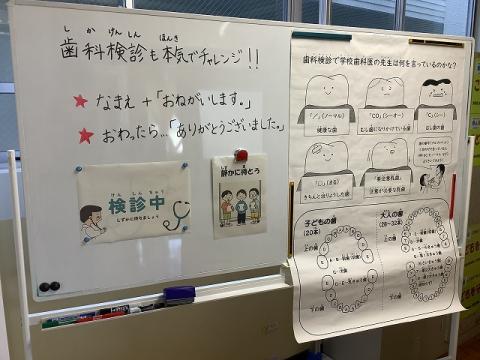 しかけんしん ほんき
歯科検診も本気でチャレンジ!!
★なまえ+「おねがいします。」
★おわったら…「ありがとうございました。」
けんしんちゅう
検診中
しずかに待ちましょう
静かに待とう
歯科検診で学校歯科医の先生は何を言っているのかな?
「/」(ノーマル)
健康な歯
「CO」(シーオー)
むし歯になりかけている歯
「C」(シー)
むし歯
「○」(まる)
きちんと治りょうした歯
「要注意乳歯」
注意が必要な乳歯
子どもの歯
(20本)
上の歯
下の歯
大人の歯
(28~32本)
上の歯
下の歯